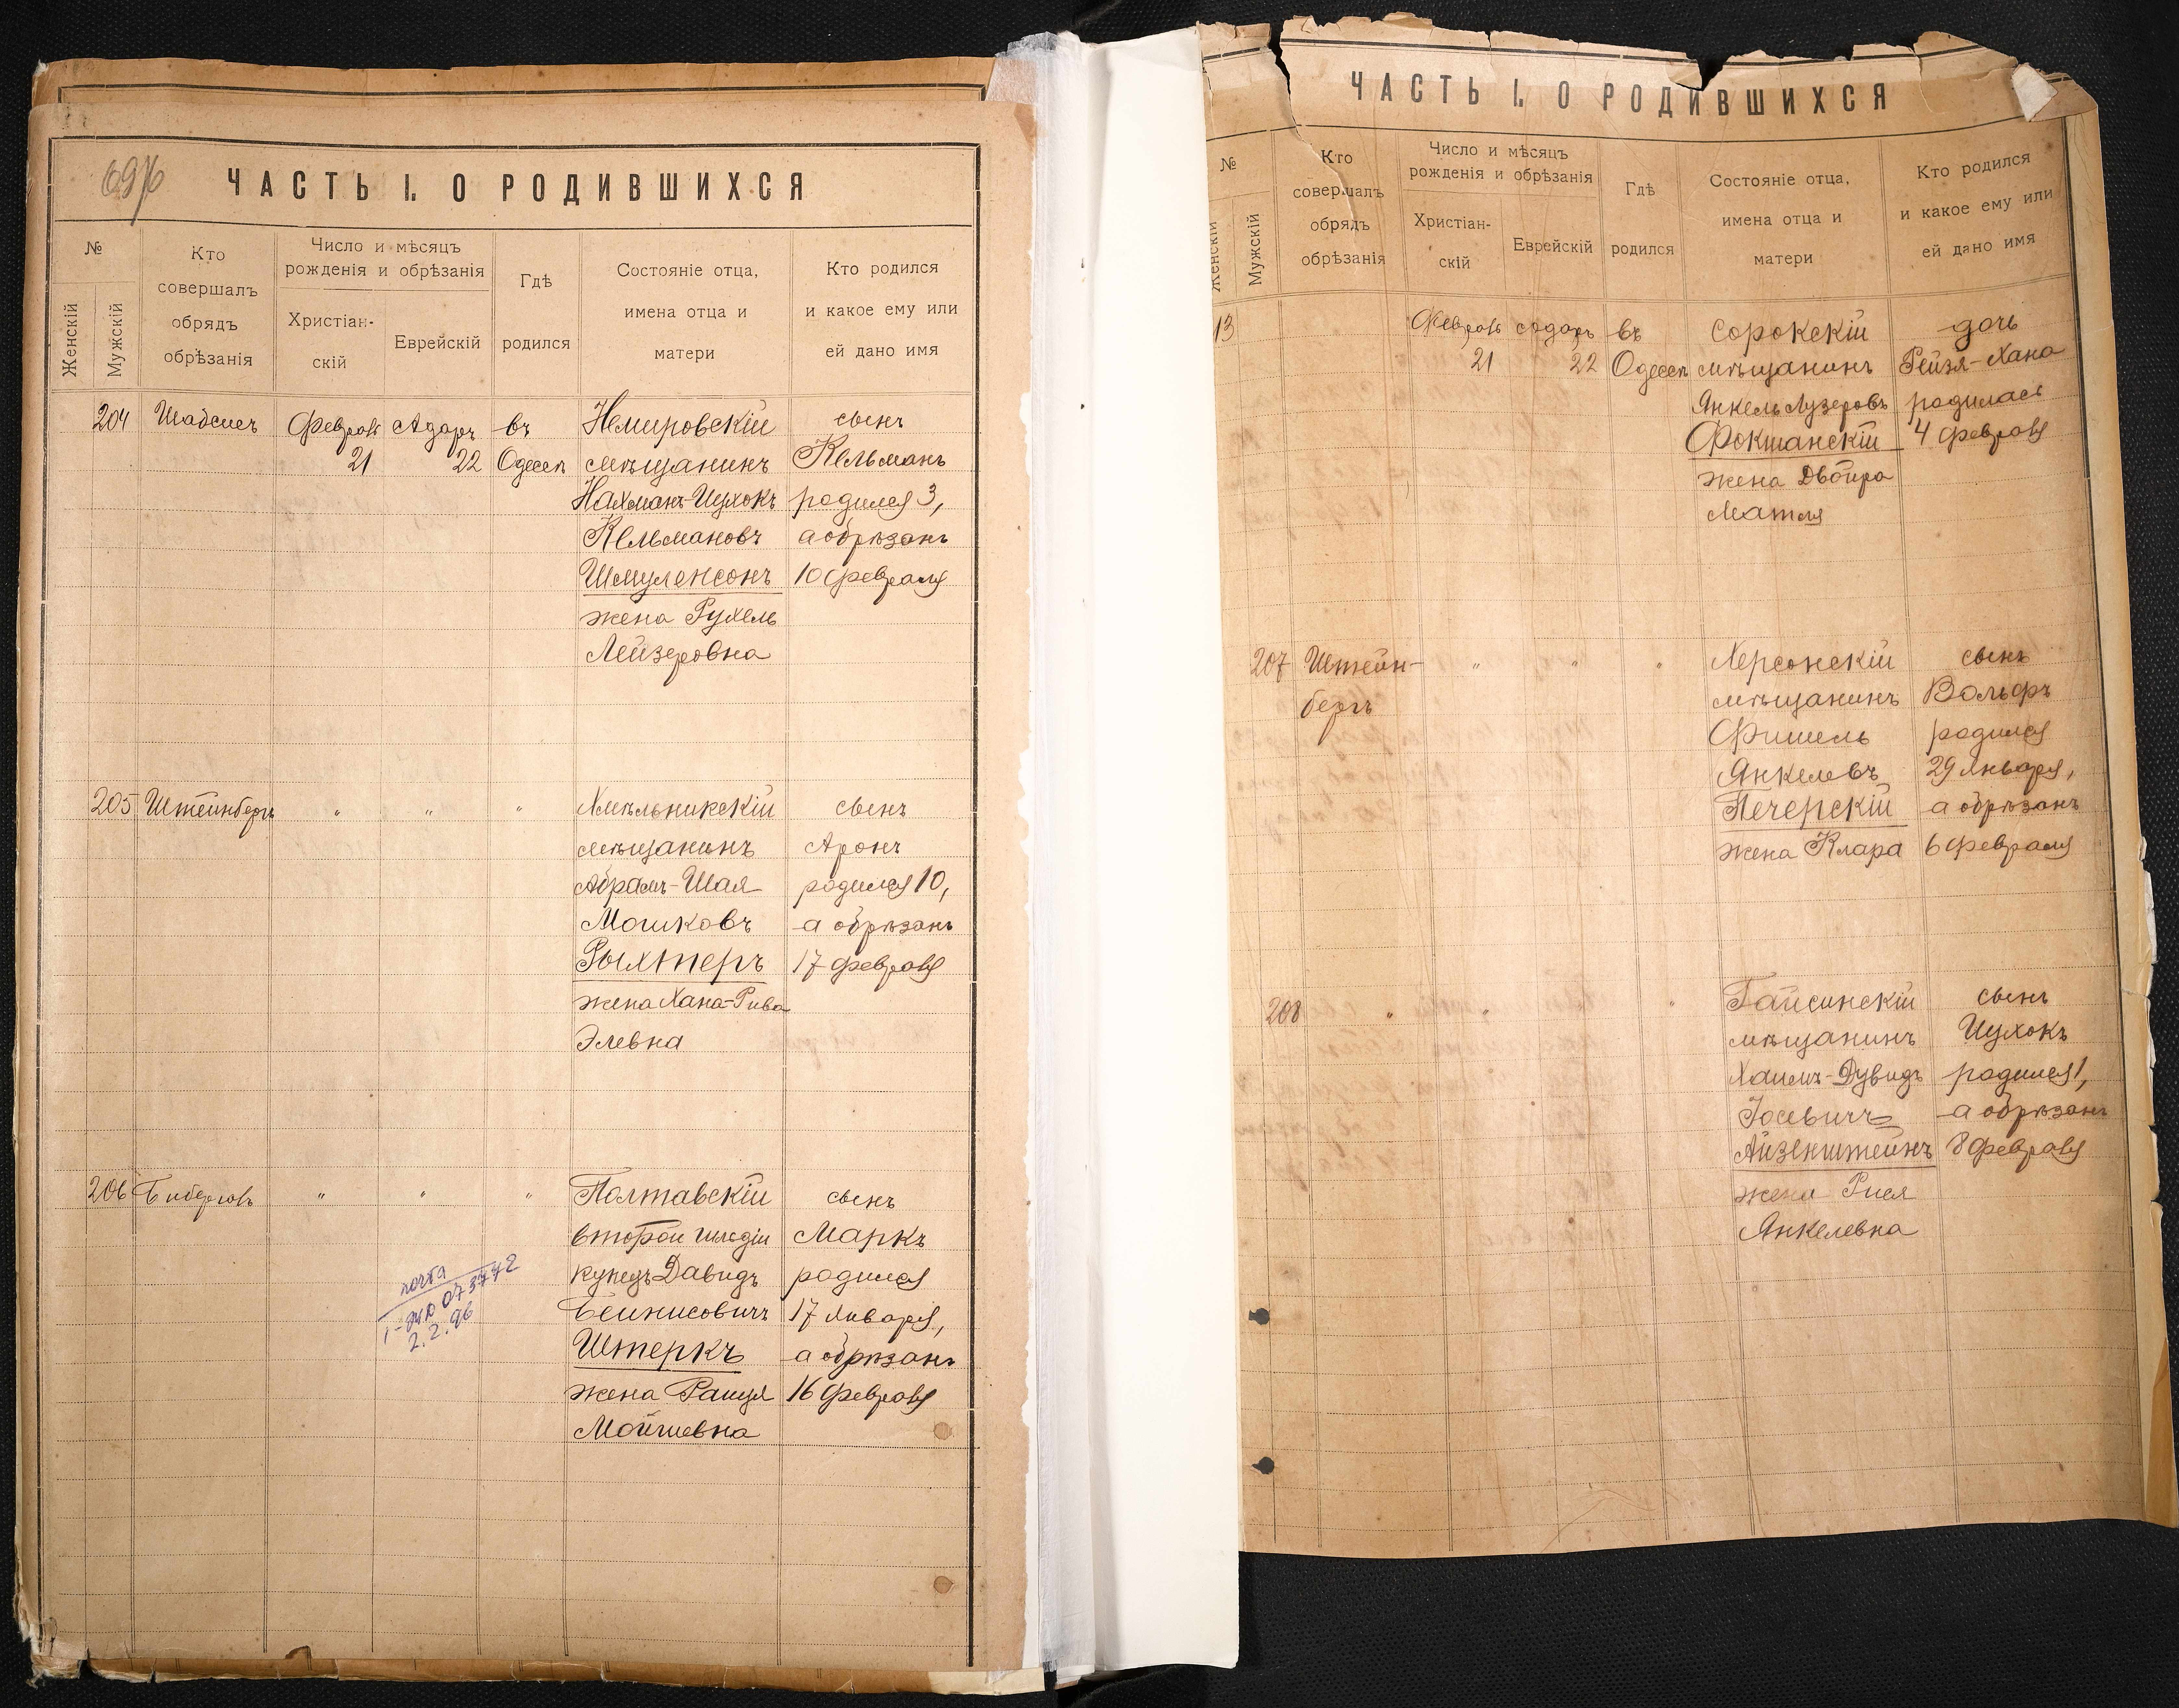 69/6
ЧАСТЬ I. О РОДИВШИХСЯ
№
Женскій
Мужскій
Кто
совершалъ
обрядъ
обрѣзанія
Число и мѣсяцъ
рожденія и обрѣзанія
Христіан-
скій
Еврейскій
Гдѣ
родился
Состояніе отца,
имена отца и
матери
Кто родился
и какое ему или
ей дано имя
204 Шабсисъ Февраль Адаръ въ Немировскій сынъ
21 22 Одессѣ мѣщанинъ Кельманъ
Нахманъ-Ицхокъ родился 3,
Кельмановъ а обрѣзанъ
Шмуленсонъ 10 февраля
жена Рухель
Лейзеровна
205 Штейнбергъ " " " Хмѣльникскій сынъ
мѣщанинъ Аронъ
Абрамъ-Шая родился 10,
Мошковъ а обрѣзанъ
Рыхтеръ 17 февраля
жена Хана-Рива
Элевна
206 " " " Полтавскій сынъ
второй гильдіи Маркъ
купецъ Давидъ родился
Бейнисовичъ 17 января,
Штеркъ а обрѣзанъ
жена Раиця 16 февраля
Мойшевна
почта
073772
2.2.96
ЧАСТЬ I. О РОДИВШИХСЯ
№
Женскій
Мужскій
Кто
совершалъ
обрядъ
обрѣзанія
Число и мѣсяцъ
рожденія и обрѣзанія
Христіан-
скій
Еврейскій
Гдѣ
родился
Состояніе отца,
имена отца и
матери
Кто родился
и какое ему или
ей дано имя
13 Февраль Адаръ въ Сорокскій дочь
21 22 Одессѣ мѣщанинъ Рейзя-Хана
Янкель Лузеровъ родилась
Фокшанскій 4 февраля
жена Двойра
Матля
207 Штейн- " " " Херсонскій сынъ
бергъ мѣщанинъ Вольфъ
Фишель родился
Янкелевъ 29 января,
Печерскій а обрѣзанъ
жена Клара 6 февраля
208 " " " Гайсинскій сынъ
мѣщанинъ Ицхокъ
Хаимъ-Дувидъ родился 1,
Іосевичъ а обрѣзанъ
Айзенштейнъ 8 февраля
жена Рися
Янкелевна